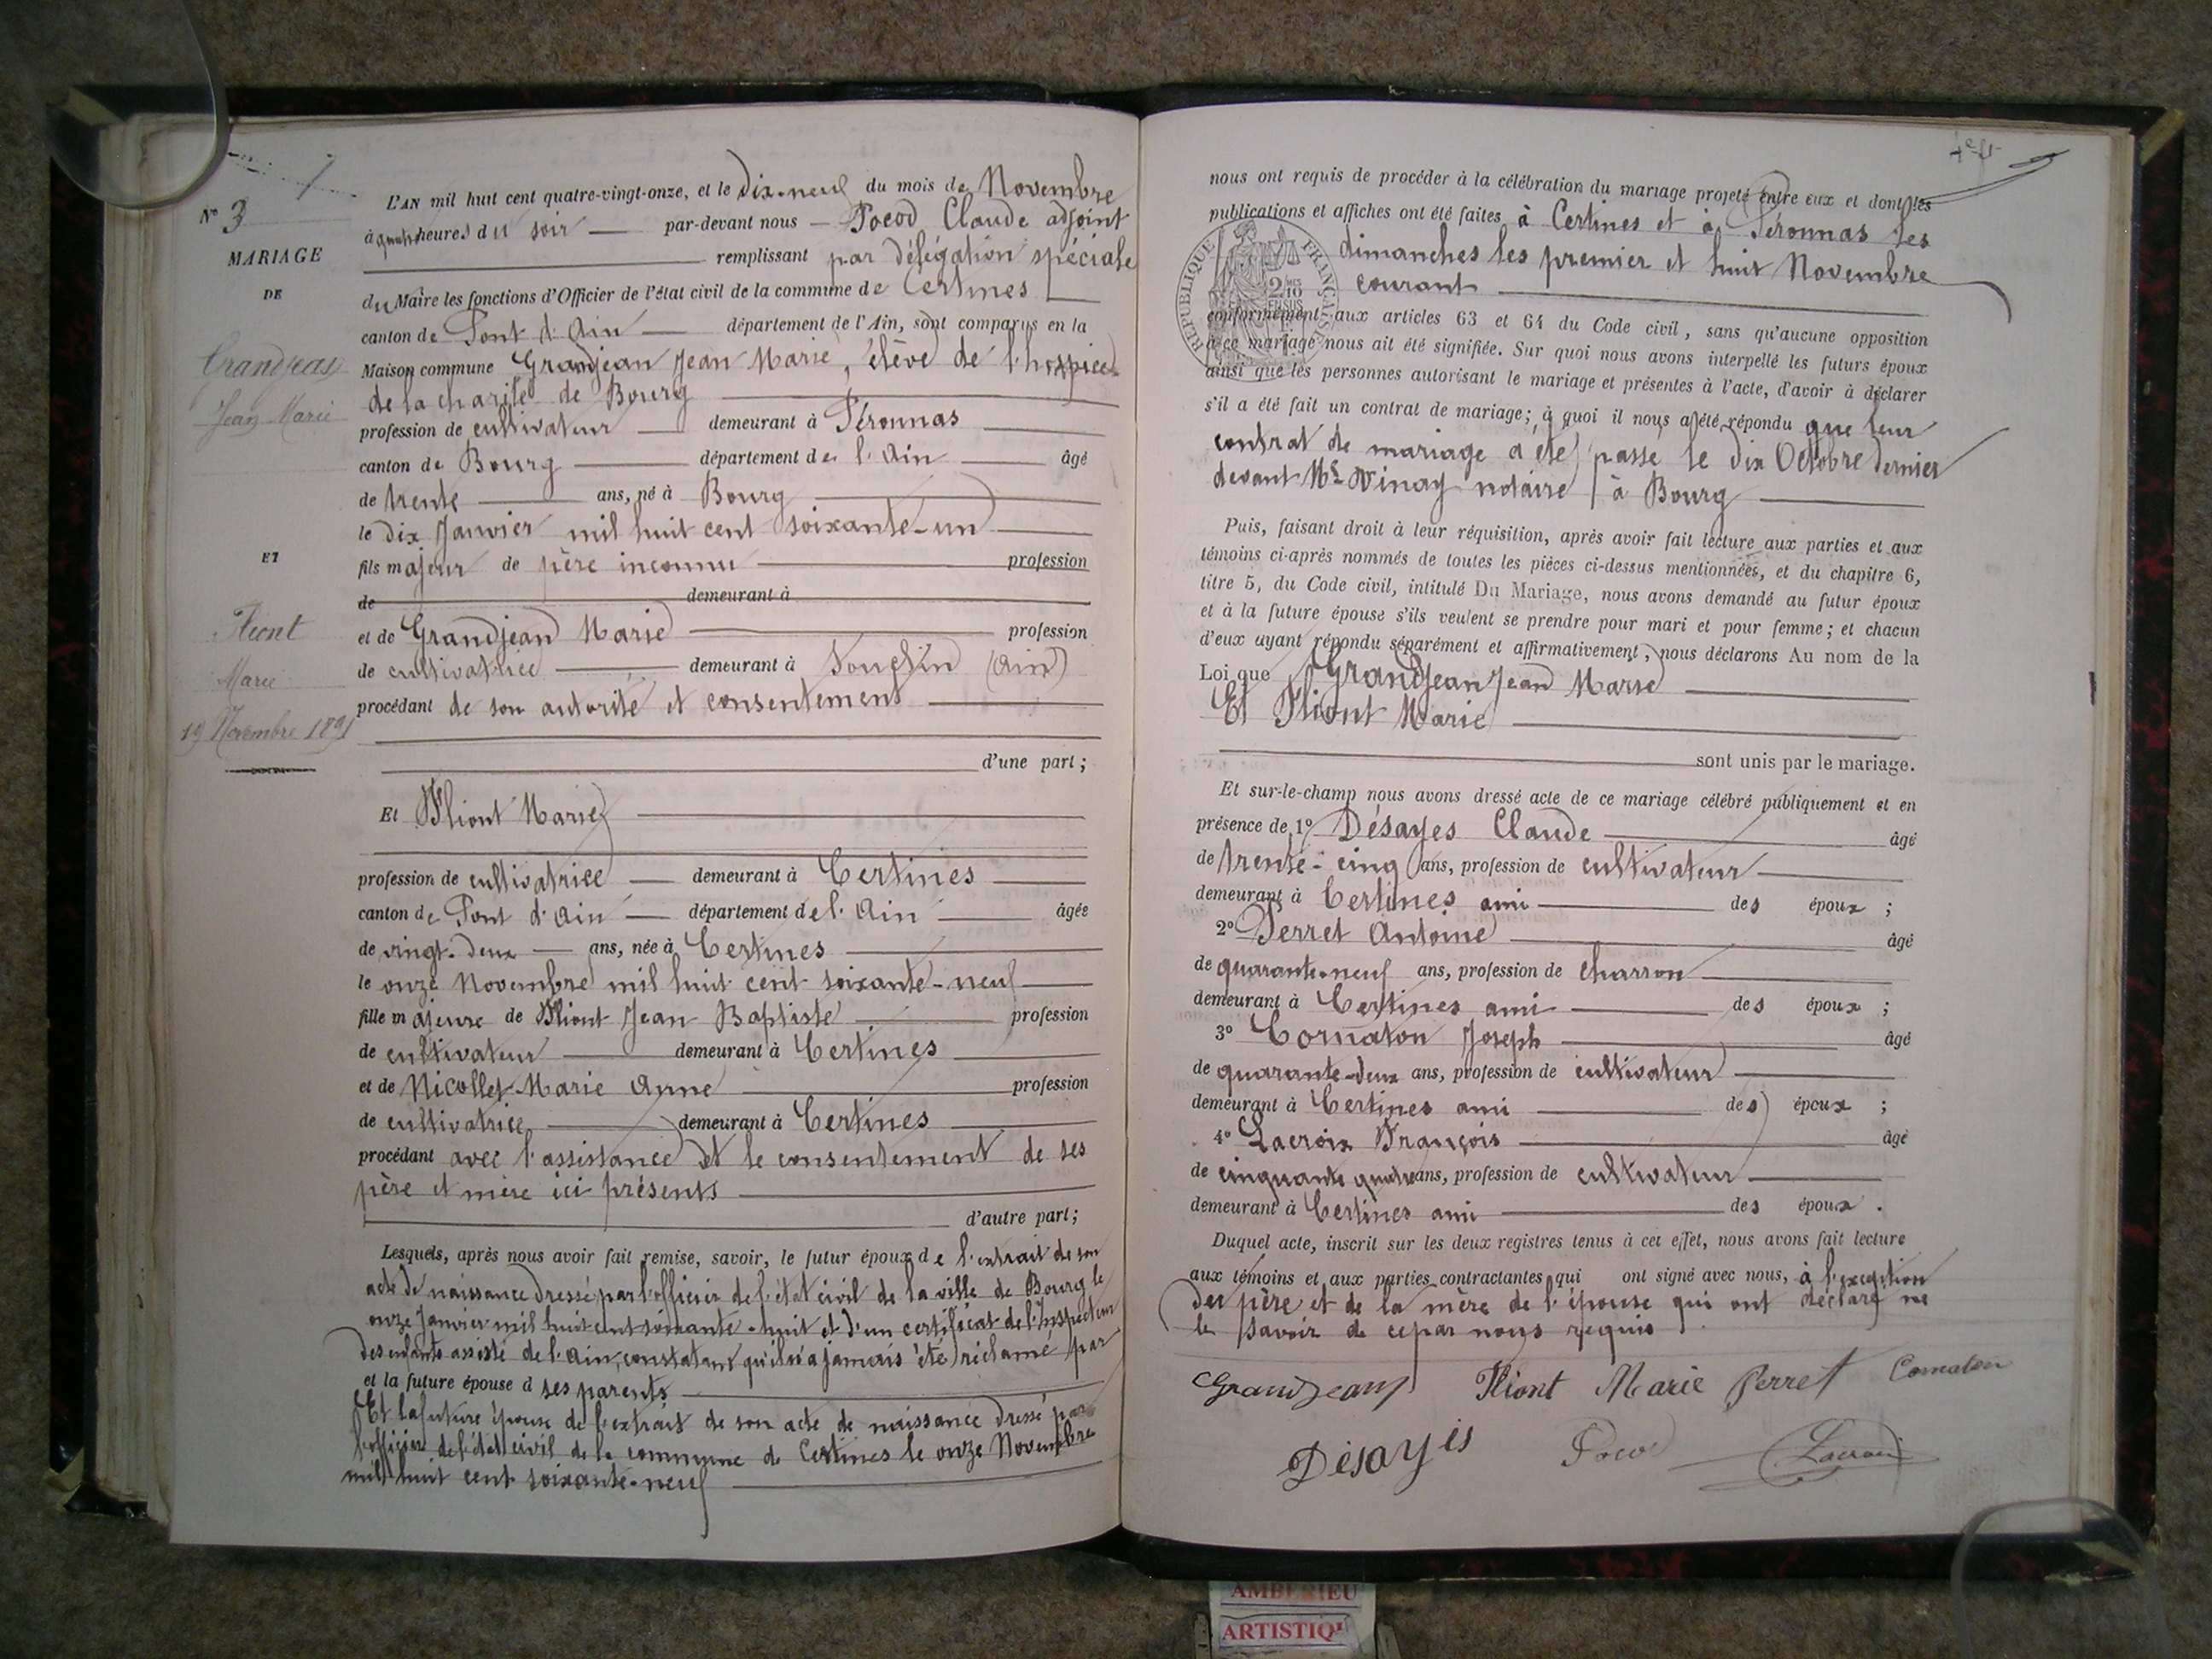 N° 3
MARIAGE
DE
Grandjean
Jean Marie
ET
Fliont
Marie
19 Novembre 1891
L'AN mil huit cent quatre-vingt-onze, et le dix-neuf du mois de Novembre
à quatre heures du soir par-devant nous Pocod Claude adjoint
remplissant par délégation spéciale
du Maire les fonctions d'Officier de l'état civil de la commune de Certines
canton de Pont d'Ain département de l'Ain, sont comparus en la
Maison commune Grandjean Jean Marie, élève de l'hospice
de la charité de Bourg
profession de cultivateur demeurant à Péronnas
canton de Bourg département de l'Ain âgé
de trente ans, né à Bourg
le dix Janvier mil huit cent soixante-un
fils majeur de père inconnu profession
de demeurant à
et de Grandjean Marie profession
de cultivatrice demeurant à (Ain)
procédant de son autorité et consentement
d'une part ;
Et Fliont Marie
profession de cultivatrice demeurant à Certines
canton de Pont d'Ain département de l'Ain âgée
de vingt-deux ans, née à Certines
le onze Novembre mil huit cent soixante-neuf
fille majeure de Fliont Jean Baptiste profession
de cultivateur demeurant à Certines
et de Nicollet Marie Anne profession
de cultivatrice demeurant à Certines
procédant avec l'assistance et le consentement de ses
père et mère ici présents
d'autre part ;
Lesquels, après nous avoir fait remise, savoir, le futur époux de l'extrait de son
acte de naissance dressé par l'officier de l'état civil de la ville de Bourg le
onze Janvier mil huit cent soixante-huit et d'un certificat de l'Inspecteur
des enfants assisté de l'Ain, constatant qu'il n'a jamais été réclamé par
et la future épouse d ses parents
Et la future épouse de l'extrait de son acte de naissance dressé par
l'officier de l'état civil de la commune de Certines le onze Novembre
mil huit cent soixante-neuf
nous ont requis de procéder à la célébration du mariage projeté entre eux et dont les
publications et affiches ont été faites à Certines et à Péronnas les
dimanches les premier et huit Novembre
courant
RÉPUBLIQUE FRANÇAISE
2/10 EN SUS
conformément aux articles 63 et 64 du Code civil, sans qu'aucune opposition
à ce mariage nous ait été signifiée. Sur quoi nous avons interpellé les futurs époux
ainsi que les personnes autorisant le mariage et présentes à l'acte, d'avoir à déclarer
s'il a été fait un contrat de mariage ; à quoi il nous a été répondu que leur
contrat de mariage a été passé le dix Octobre dernier
devant Me Vinay notaire à Bourg
Puis, faisant droit à leur réquisition, après avoir fait lecture aux parties et aux
témoins ci-après nommés de toutes les pièces ci-dessus mentionnées, et du chapitre 6,
titre 5, du Code civil, intitulé Du Mariage, nous avons demandé au futur époux
et à la future épouse s'ils veulent se prendre pour mari et pour femme ; et chacun
d'eux ayant répondu séparément et affirmativement, nous déclarons Au nom de la
Loi que Grandjean Jean Marie
Et Fliont Marie
sont unis par le mariage.
Et sur-le-champ nous avons dressé acte de ce mariage célébré publiquement et en
présence de 1° Désayes Claude âgé
de trente-cinq ans, profession de cultivateur
demeurant à Certines ami des époux ;
2° Perret Antoine âgé
de quarante-neuf ans, profession de charron
demeurant à Certines ami des époux ;
3° Cornaton Joseph âgé
de quarante-deux ans, profession de cultivateur
demeurant à Certines ami des époux ;
4° Lacroix François âgé
de cinquante quatre ans, profession de cultivateur
demeurant à Certines ami des époux.
Duquel acte, inscrit sur les deux registres tenus à cet effet, nous avons fait lecture
aux témoins et aux parties contractantes qui ont signé avec nous, à l'exception
des père et de la mère de l'épouse qui ont déclaré ne
le savoir de ce par nous requis
Grandjean Fliont Marie Perret Cornaton
Désayes Pocod Lacroix
AMBERIEU
ARTISTIQ